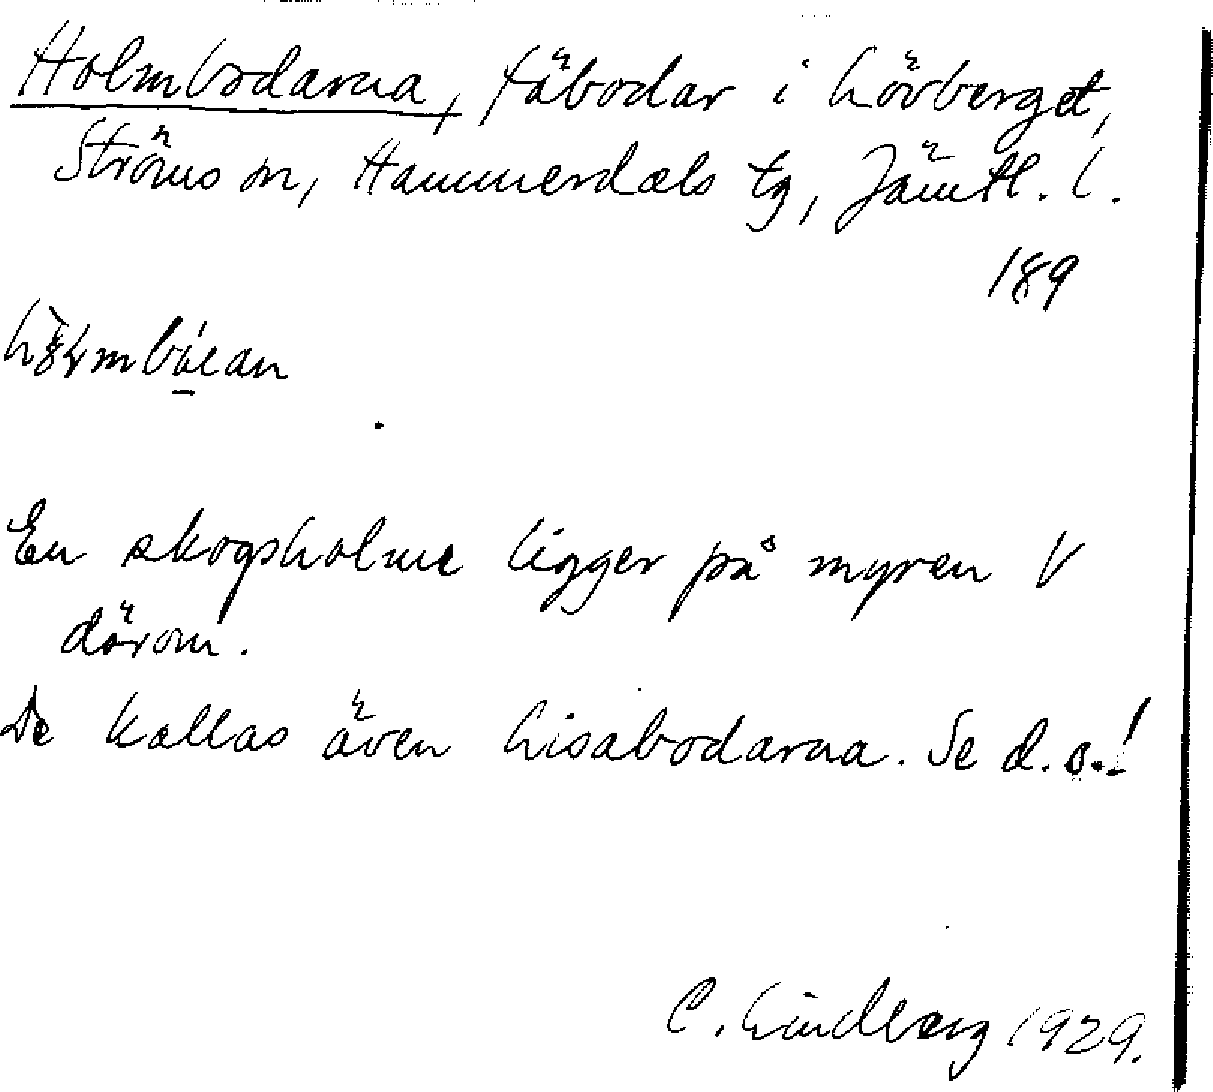 Holmbodarna, fäbodar i Lövberget,
Ströms sn, Hammerdals tg, Jämtl. l.
189
En skogsholme ligger på myren V
därom.
De kallas även Lisabodarna. Se d.o.!
C. Lindberg 1929.